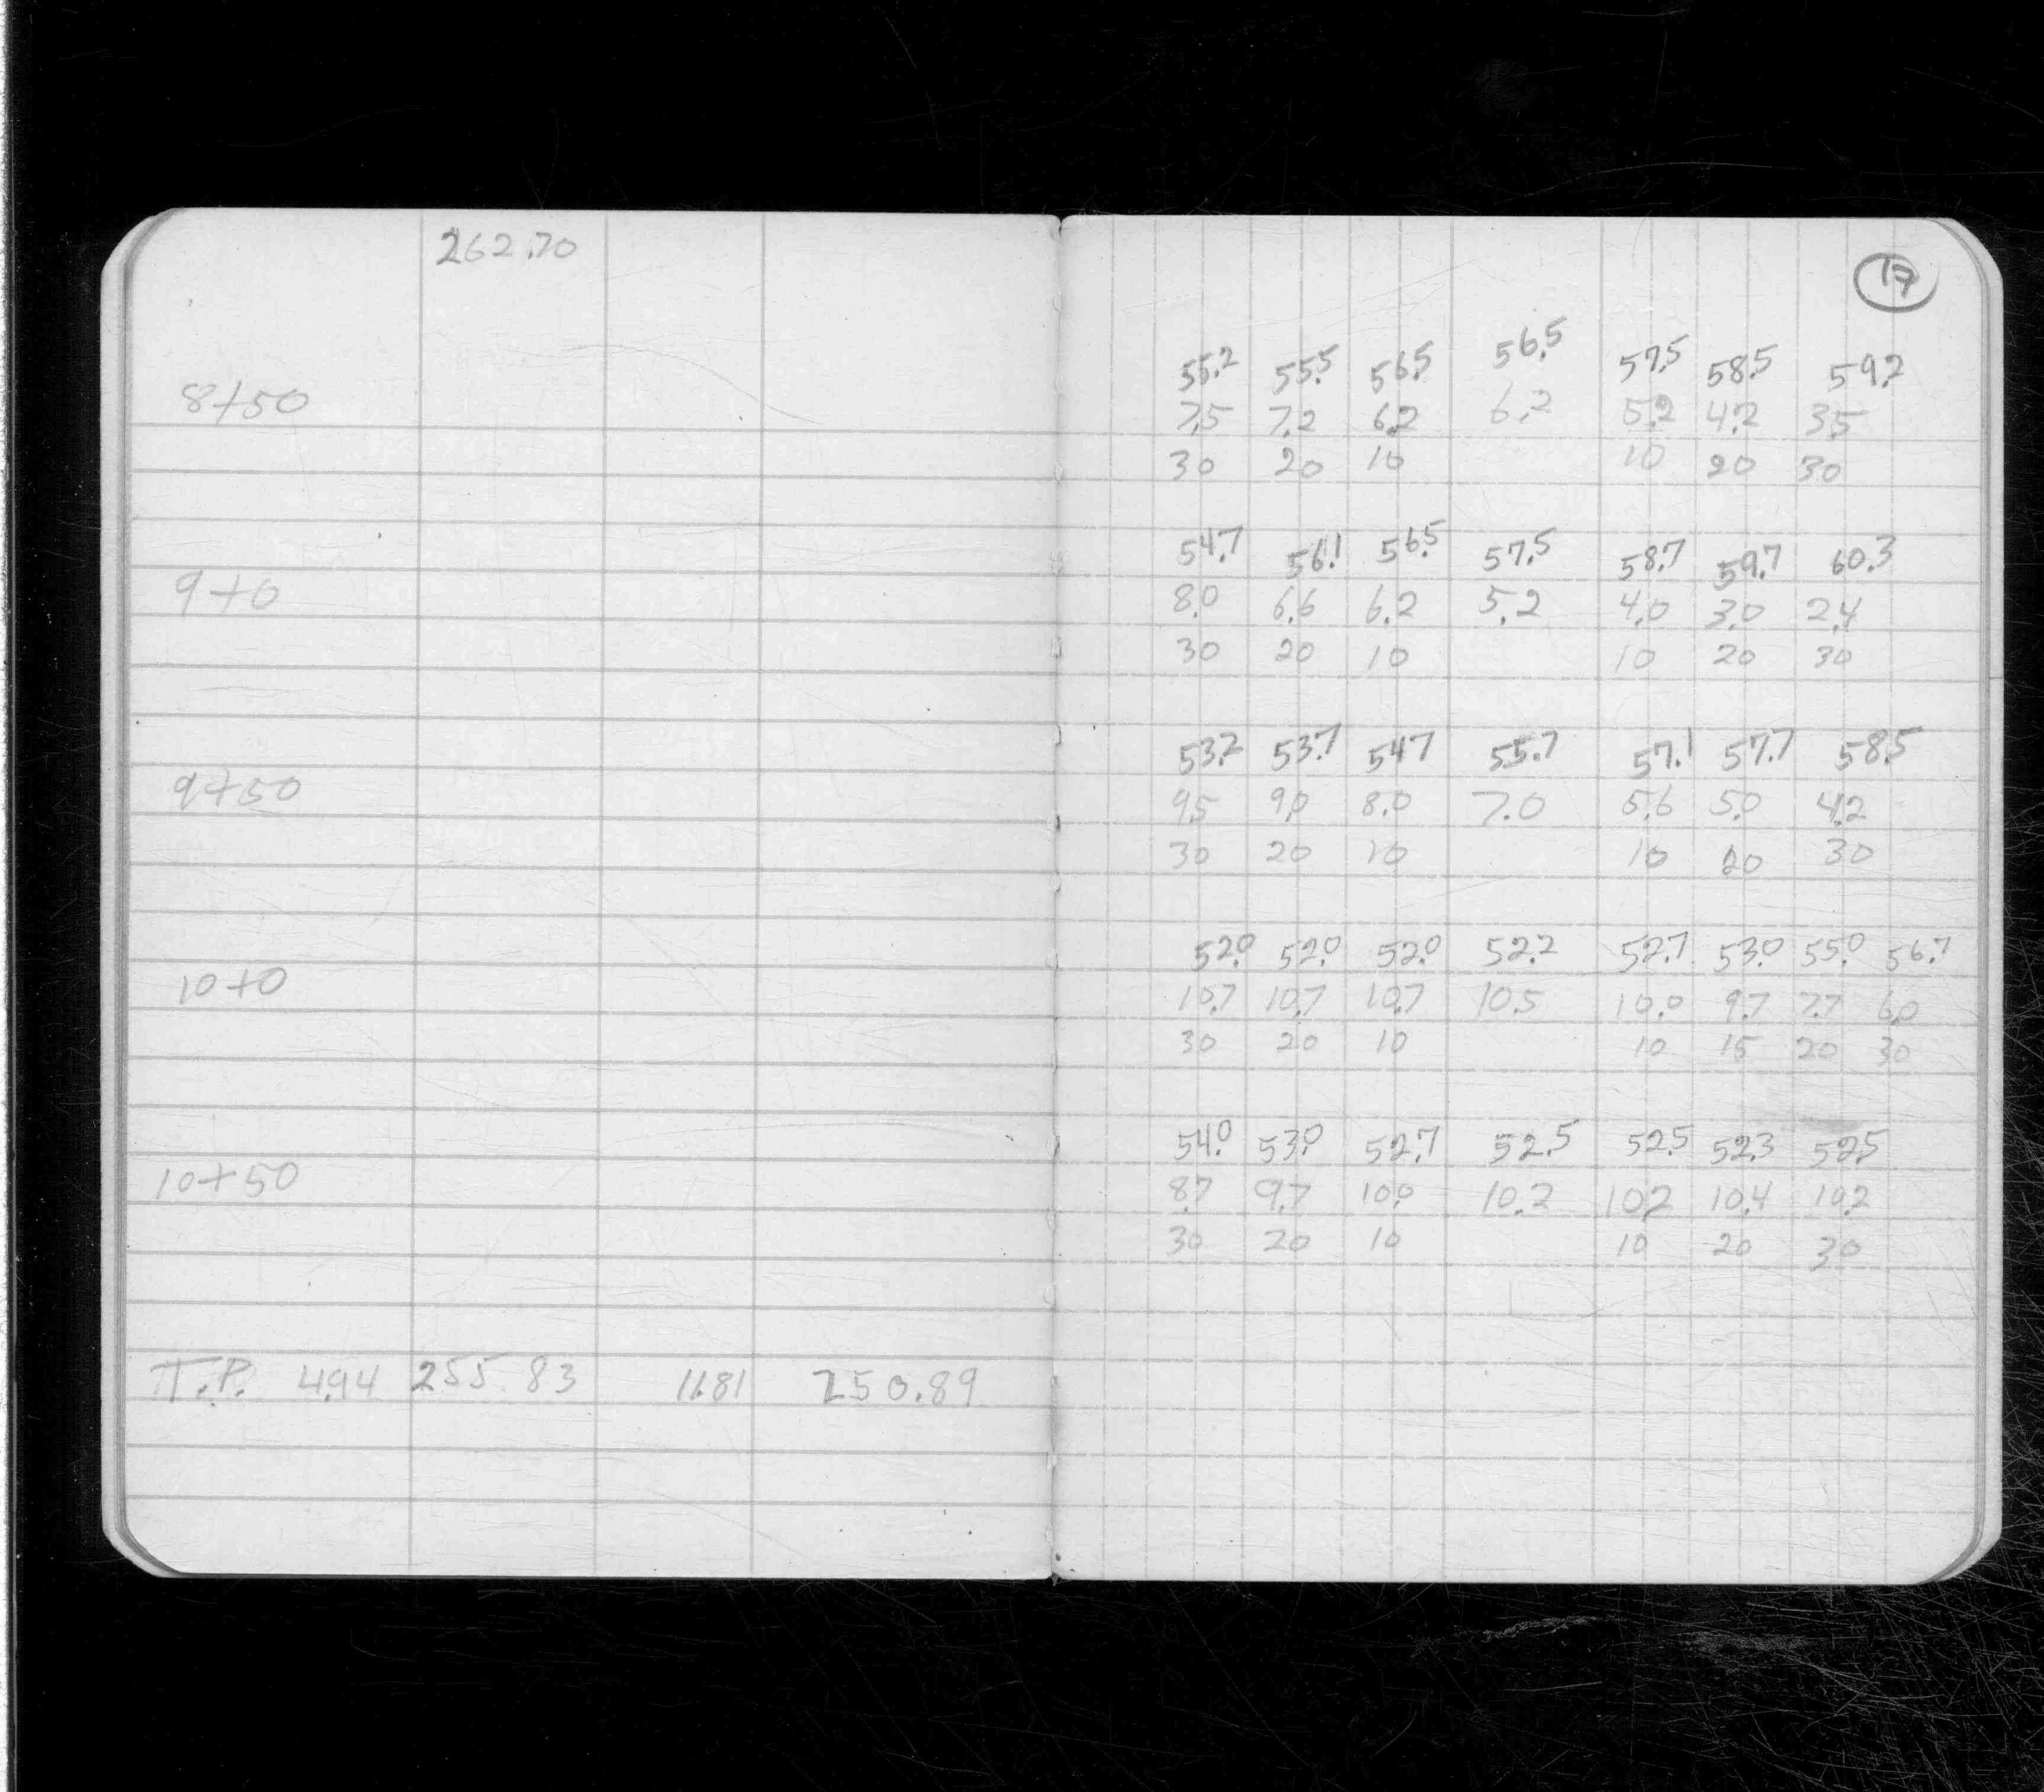 262.70
8+50
9+0
9+50
10+0
10+50
T.P. 4.94 255.83 11.81 250.89
17
55.2 55.5 56.5 56.5 57.5 58.5 59.2
7.5 7.2 6.2 6.2 5.2 4.2 3.5
30 20 10 10 20 30
54.7 56.1 56.5 57.5 58.7 59.7 60.3
8.0 6.6 6.2 5.2 4.0 3.0 2.4
30 20 10 10 20 30
53.2 53.7 54.7 55.7 57.1 57.7 58.5
9.5 9.0 8.0 7.0 5.6 5.0 4.2
30 20 10 10 20 30
52.0 52.0 52.0 52.2 52.7 53.0 55.0 56.7
10.7 10.7 10.7 10.5 10.0 9.7 7.7 6.0
30 20 10 10 15 20 30
54.0 53.0 52.7 52.5 52.5 52.3 52.5
8.7 9.7 10.0 10.2 10.2 10.4 10.2
30 20 10 10 20 30